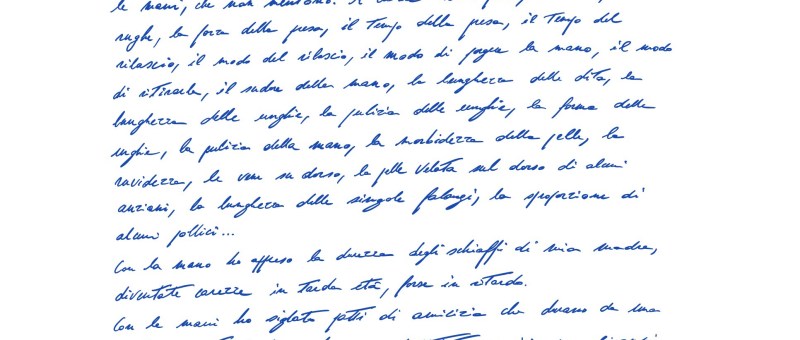 le mani, che non mentono.
rughe, la forza della presa, il tempo della presa, il tempo del
rilascio, il modo del rilascio, il modo di porgere la mano, il modo
di ritirarla, il sudore della mano, la lunghezza delle dita, la
lunghezza delle unghie, la pulizia delle unghie, la forma delle
unghie, la pulizia della mano, la morbidezza della pelle, la
ruvidezza, le vene su dorso, la pelle velata sul dorso di alcuni
anziani, la lunghezza delle singole falangi, la sproporzione di
alcuni pollici...
Con la mano ho appreso la durezza degli schiaffi di mia madre,
diventate carezze in tarda età, forse in ritardo.
Con le mani ho siglato patti di amicizia che durano da una